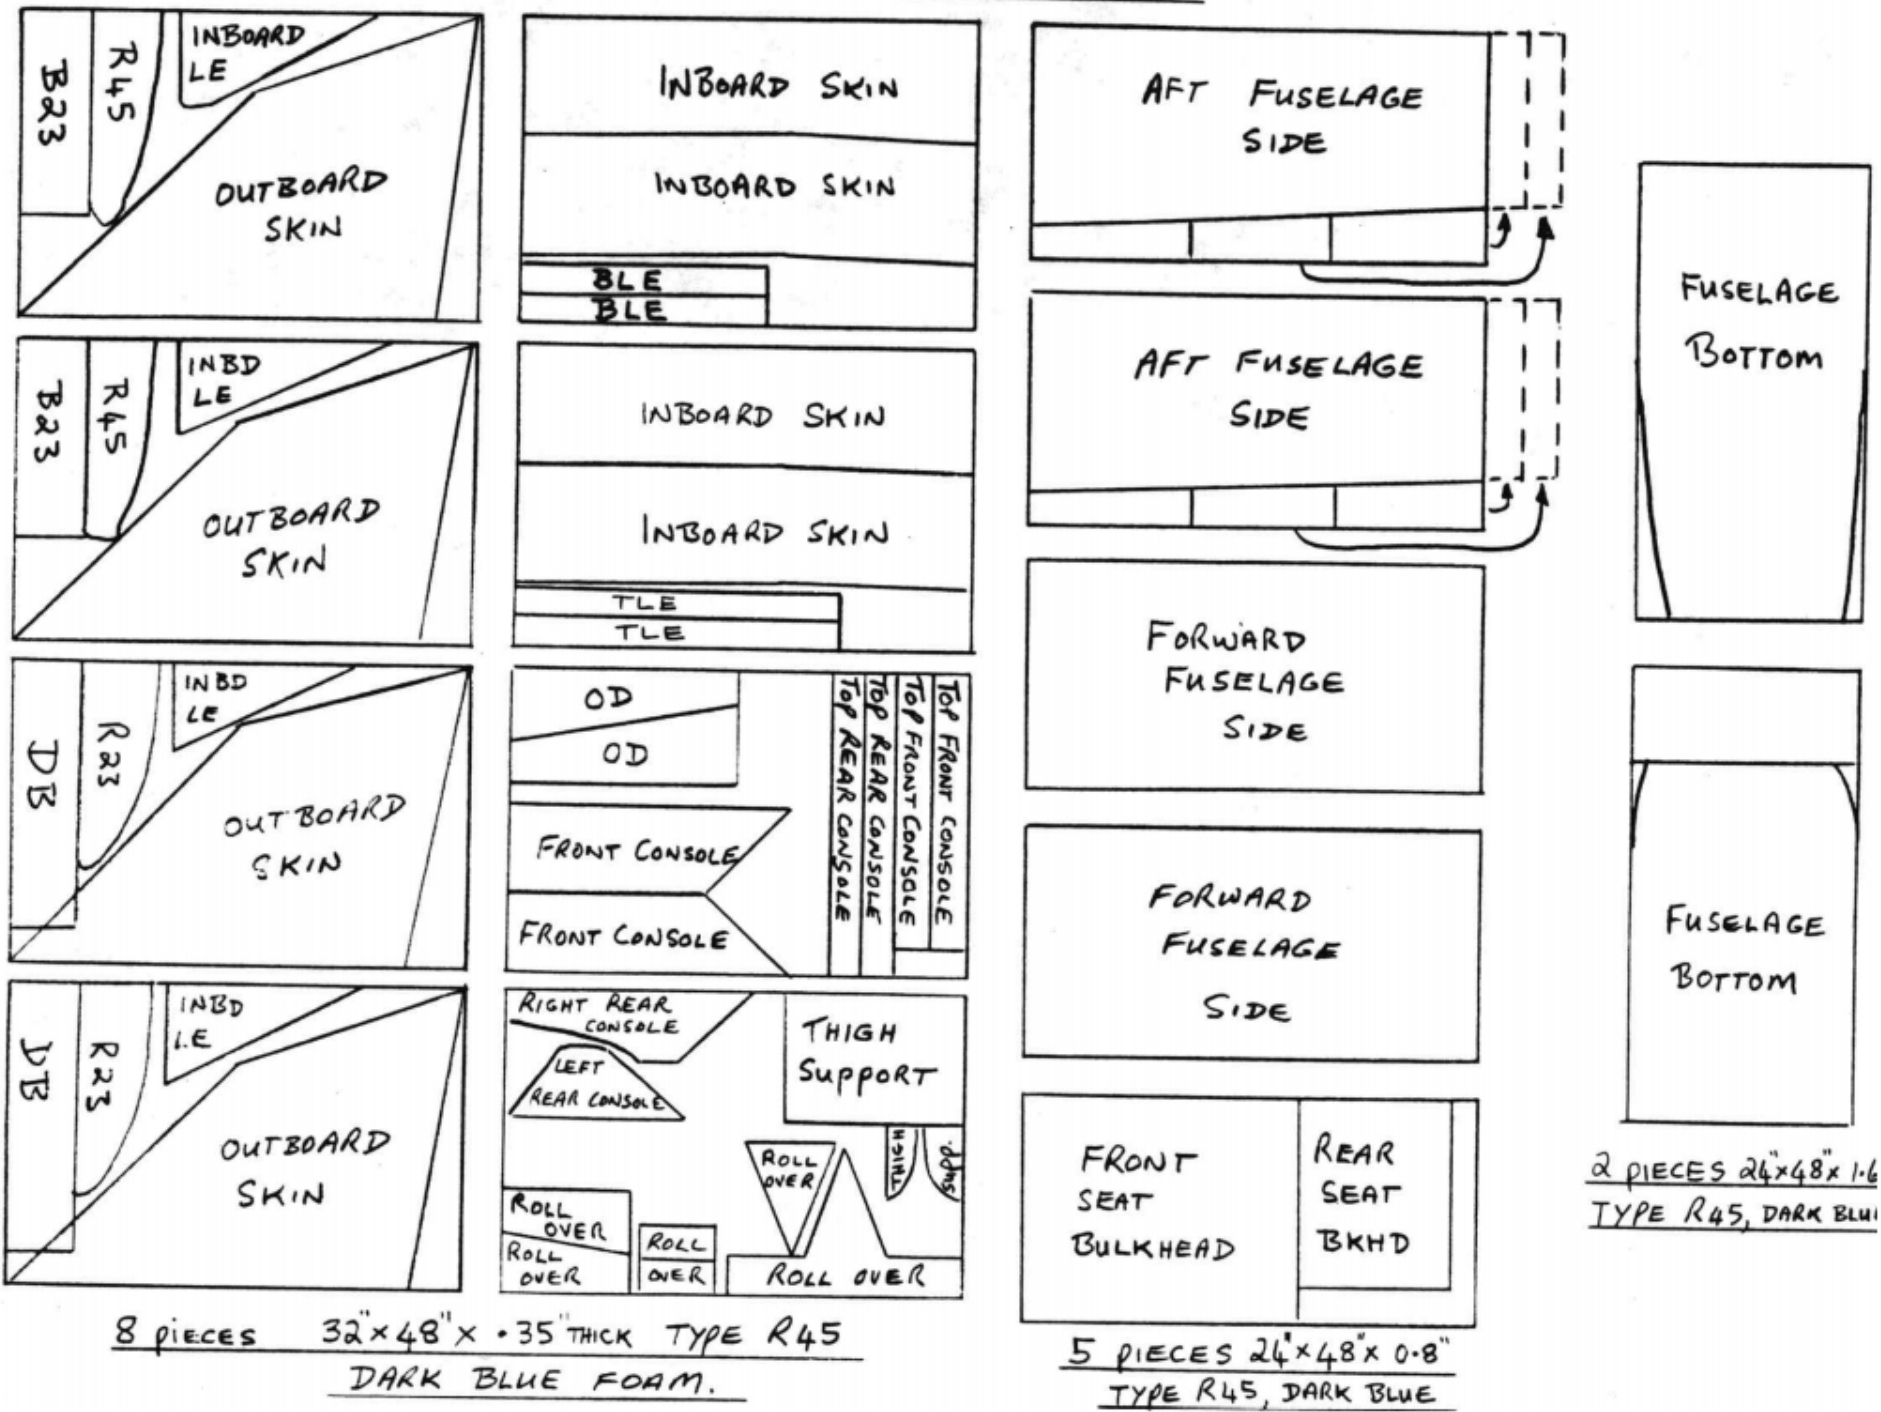 B23
R45
INBOARD
LE
OUTBOARD
SKIN
B23
R45
INBD
LE
OUTBOARD
SKIN
DB
R23
INBD
LE
OUTBOARD
SKIN
DB
R23
INBD
LE
OUTBOARD
SKIN
INBOARD SKIN
INBOARD SKIN
BLE
BLE
INBOARD SKIN
INBOARD SKIN
TLE
TLE
OD
OD
FRONT CONSOLE
FRONT CONSOLE
TOP REAR CONSOLE
TOP REAR CONSOLE
TOP FRONT CONSOLE
TOP FRONT CONSOLE
RIGHT REAR
CONSOLE
LEFT
REAR CONSOLE
THIGH
SUPPORT
THIGH
SUPP.
ROLL
OVER
ROLL
OVER
ROLL
OVER
ROLL
OVER
ROLL OVER
8 PIECES 32"x48"x .35" THICK TYPE R45
DARK BLUE FOAM.
AFT FUSELAGE
SIDE
AFT FUSELAGE
SIDE
FORWARD
FUSELAGE
SIDE
FORWARD
FUSELAGE
SIDE
FRONT
SEAT
BULKHEAD
REAR
SEAT
BKHD
5 PIECES 24"x48"x 0.8"
TYPE R45, DARK BLUE
FUSELAGE
BOTTOM
FUSELAGE
BOTTOM
2 PIECES 24"x48"x 1.6
TYPE R45, DARK BLU